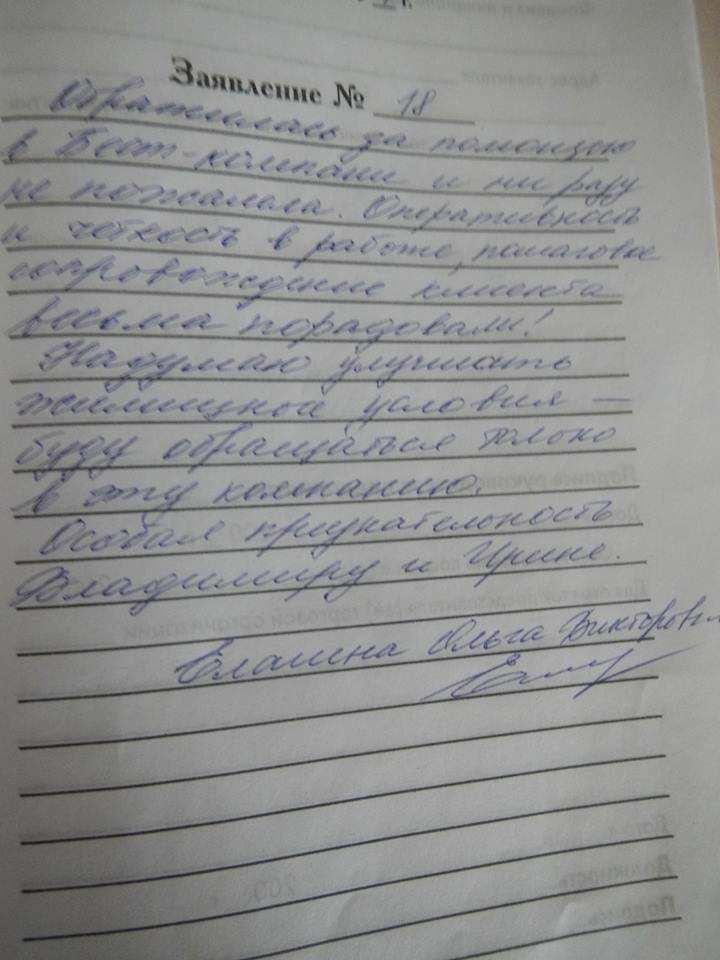 Заявление № 18
Обратилась за помощью
в Бест-компани и ни разу
не пожалела. Оперативность
и чёткость в работе, пошаговое
сопровождение клиента
весьма порадовали!
Надумаю улучшить
жилищные условия —
буду обращаться только
в эту компанию.
Особая признательность
Владимиру и Ирине.
Ольга Викторовна